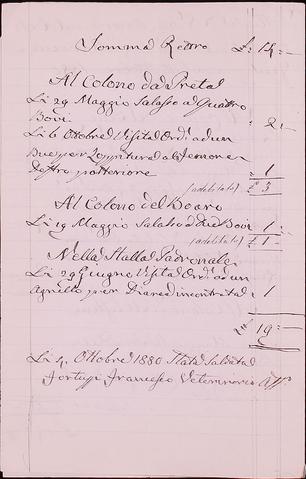 Somma Retro £: 14:
Al Colono da Preta
Li 29 Maggio Salasso a Quattro
Bovi 2:
Li 6 Ottobre Visita Ord. ad un
Bue per Zoppitura al Femore
Destro posteriore 1
(adebitato) £ 3
Al Colono del Boaro
Li 19 Maggio Salasso a Due Bovi 1:
(adebitato) £ 1
Nella Stalla Padronale
Li 29 Giugno Visita Ord. ad un
Agnello per Diarea 1
19
Li 4 Ottobre 1880 Stata Saldata
Francesco Veterinario